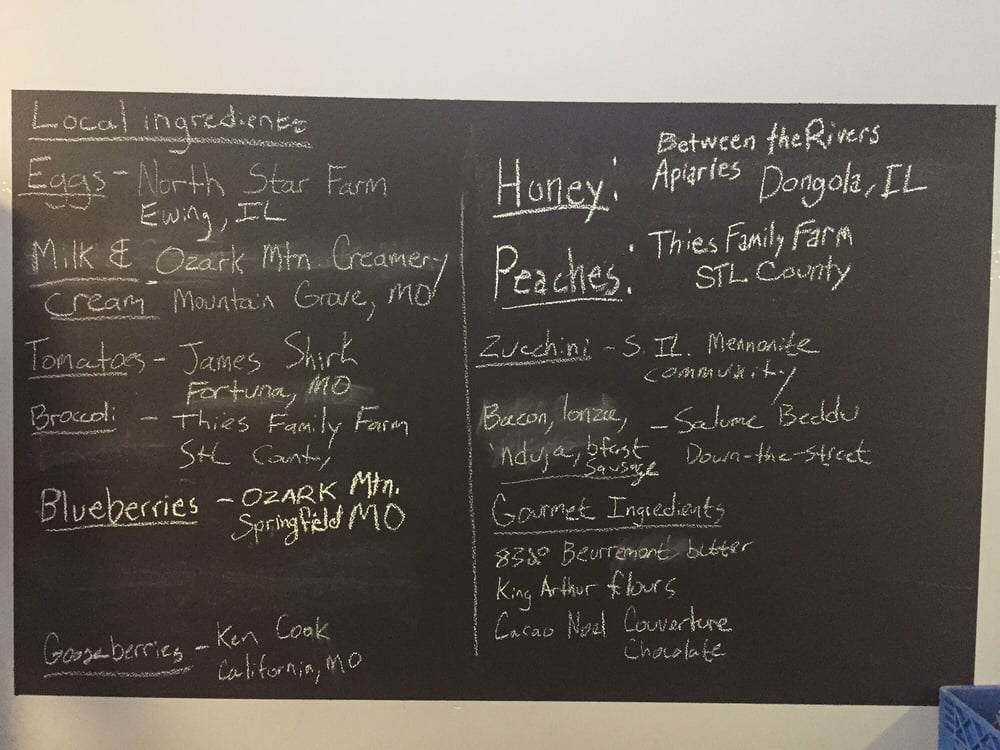 Local ingredients
Eggs - North Star Farm
Ewing, IL
Milk & Ozark Mtn. Creamery
Cream Mountain Grove, MO
Tomatoes - James Shirk
Fortuna, MO
Broccoli - Thies Family Farm
StL County
Blueberries - OZARK Mtn.
Springfield MO
Gooseberries - Ken Cook
California, MO
Honey: Between the Rivers
Apiaries Dongola, IL
Peaches: Thies Family Farm
STL County
Zucchini - S. IL. Mennonite
community
Bacon, lonza, - Salume Beddu
'nduja, bfast Down-the-street
sausage
Gourmet Ingredients
Beurremont butter
King Arthur flours
Cacao Noel Couverture
Chocolate